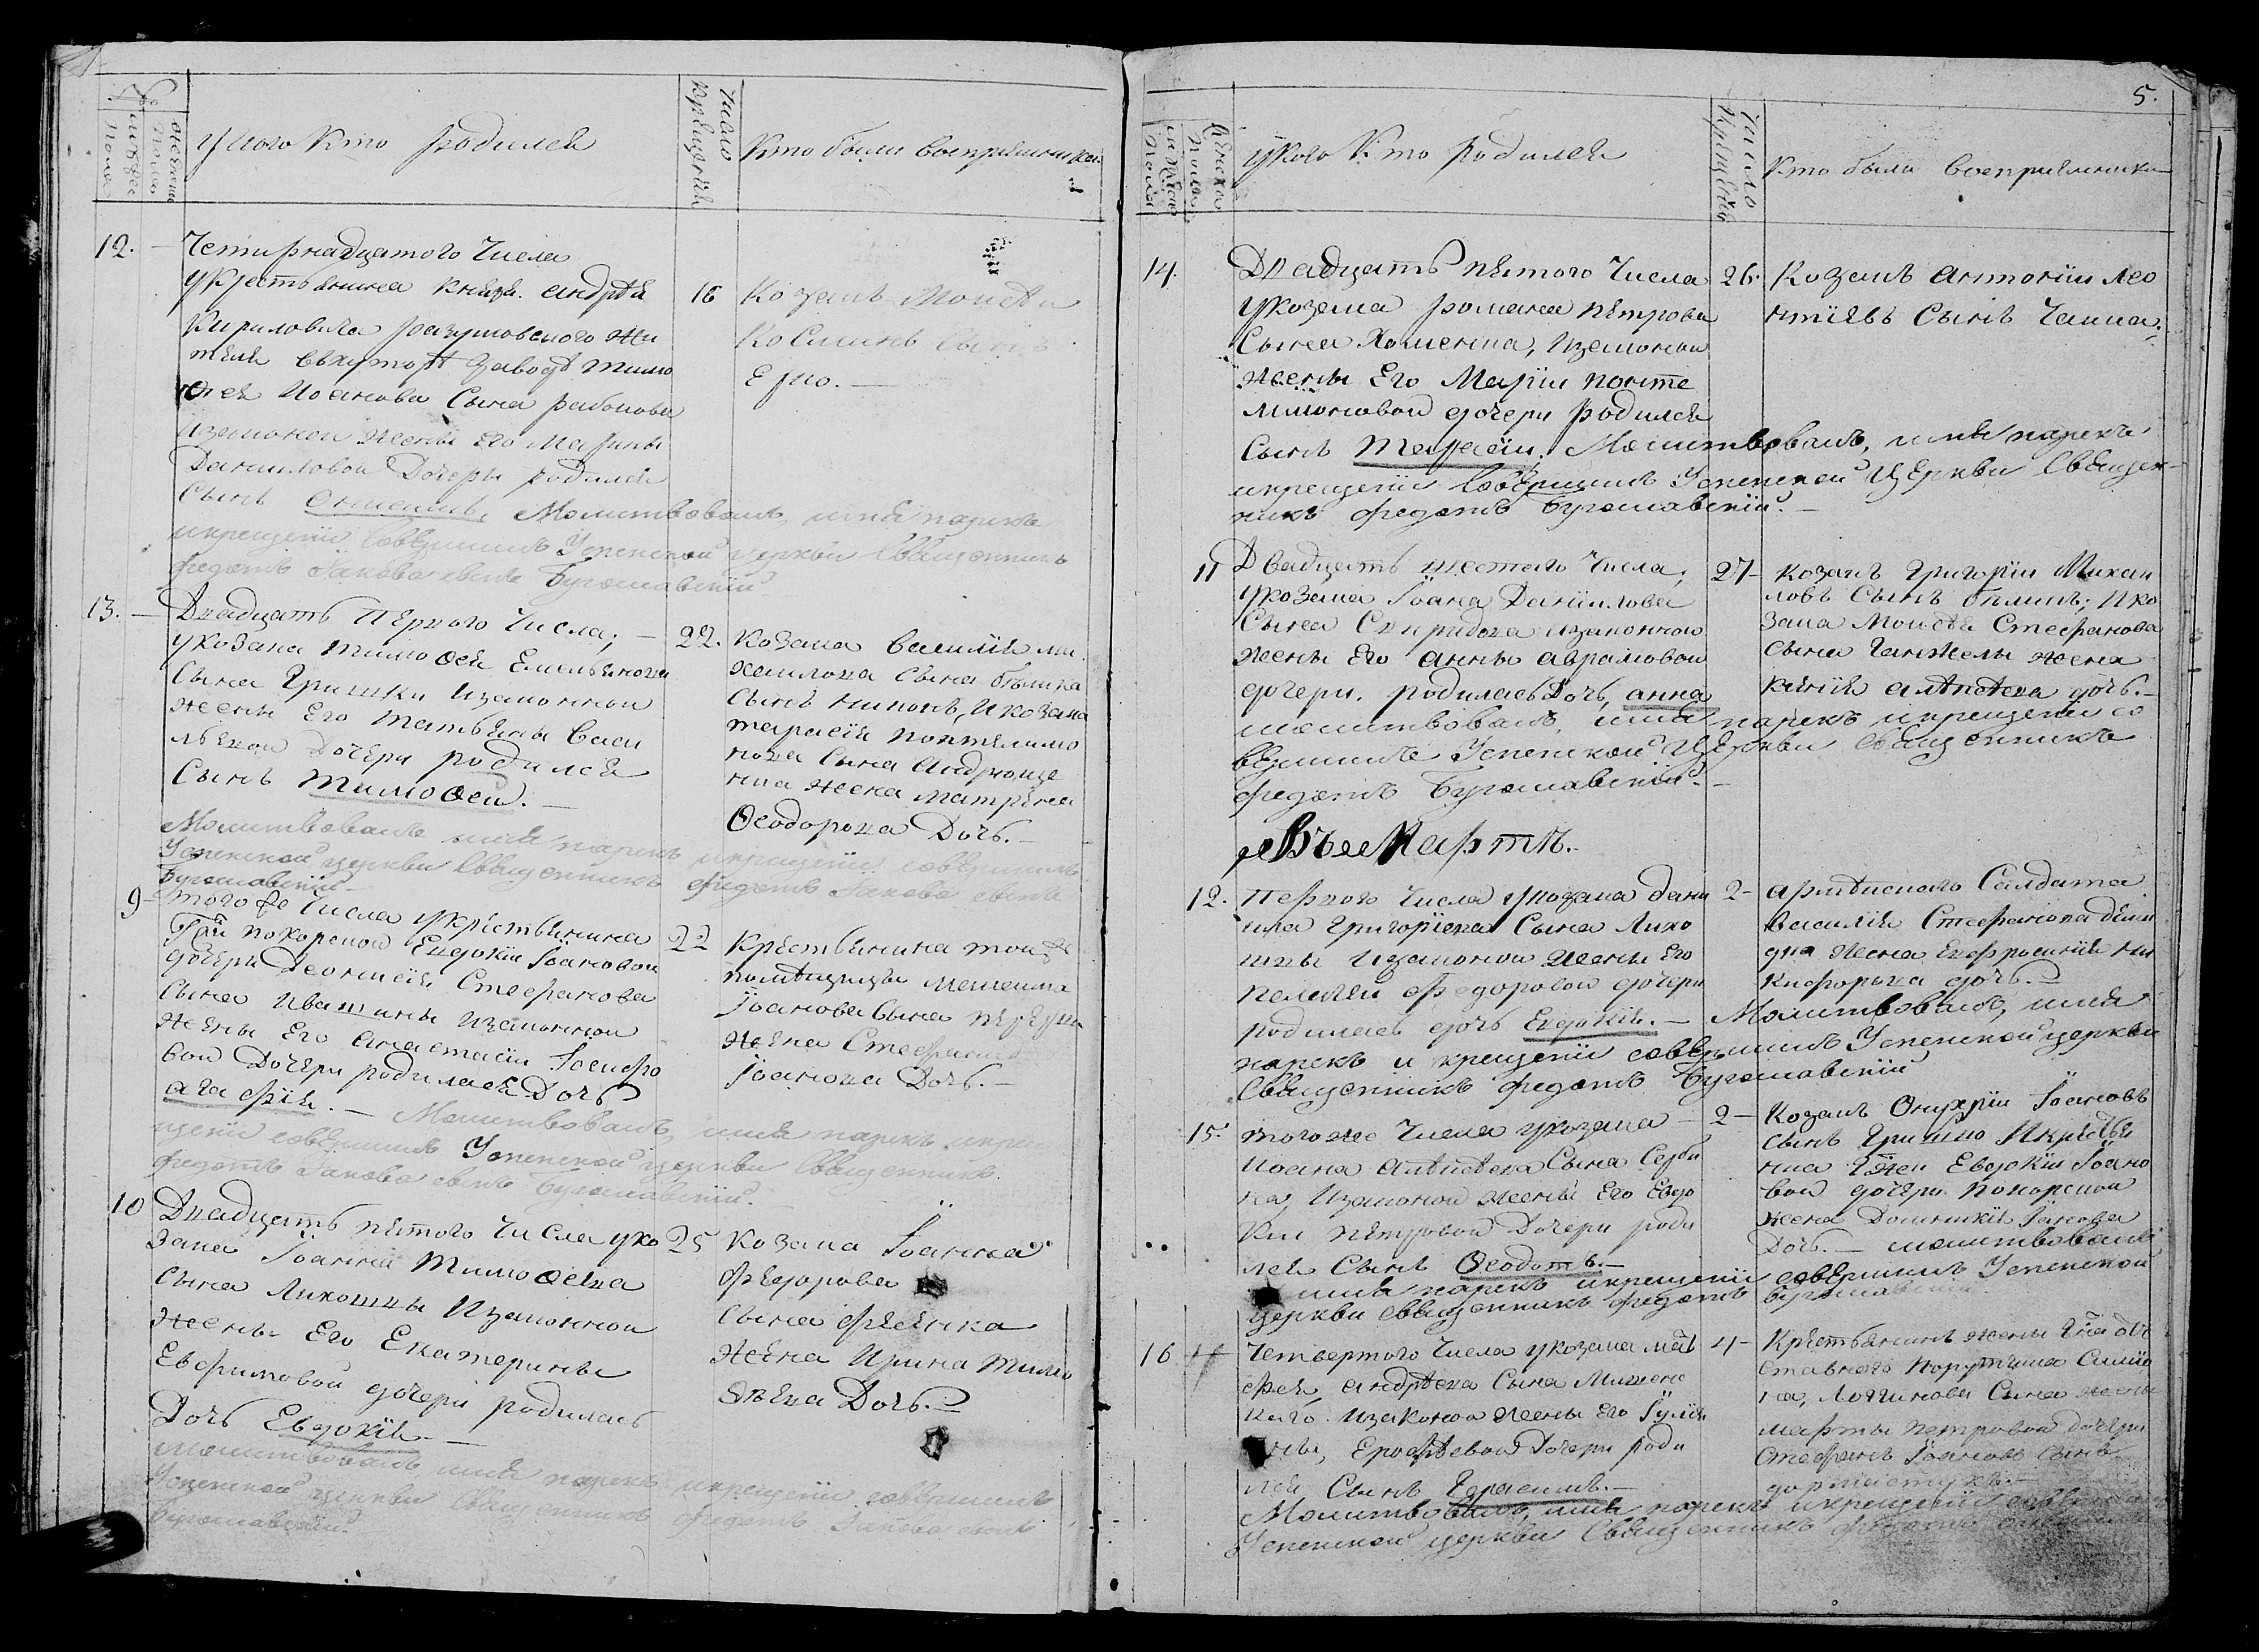 У кого кто родился
Число крещения
Кто были восприемники
12.
Четырнадцатого Числа
у Крестьянина Князя Андрея
Кириловича Разумовского жи
теля въ хуторѣ Заводѣ Тимо
ѳея Иоанова Сына
и законной жены Его Марины
Даниловой Дочери родился
Сынъ Онисимъ, Молитвовалъ, имя нарекъ
и крещеніе совершилъ Успенской церкви Священникъ
Федотъ Іаковлевичъ Бугославскій
16
Козакъ Моисей
Косминъ Сынъ
13.
Двадцать Первого Числа;
у козака Тимоѳея Емельянова
Сына Гришки и законной
жены Его Татьяны Васи
льевой Дочери родился
Сынъ Тимоѳей.
Молитвовалъ имя нарекъ и крещеніе совершилъ
Успенской церкви Священникъ Федотъ Іаковлевичъ
Бугославскій
22.
Козака Василія Ми
хаилова Сына Бѣлика
Сынъ Никонъ, и козака
Тарасія Пантелимо
нова Сына Андрюще
нка жена Матрона
Ѳеодорова Дочь.
9
Того же Числа у крестьянина
Гжи Покорской Евдокіи Іоановой
дочери Деонисія Стефанова
Сына Ивашины и законной
жены Его Анастасіи Іосифо
вой Дочери родилася Дочь
Агафія. Молитвовалъ, имя нарекъ и кре
щеніе совершилъ Успенской церкви Священникъ
Федотъ Іаковлевичъ Бугославскій
22
Крестьянина той же
помѣщицы
Іоанова Сына
жена Стефанида
Іоанова Дочь.
10
Двадцать пятого Числа у ко
зака Іоанна Тимоѳеева
Сына Лихошты и законной
жены Его Екатерины
Евфимовой дочери родилась
Дочь Евдокія.
Молитвовалъ имя нарекъ и крещеніе совершилъ
Успенской церкви Священникъ Федотъ Іаковлевичъ
Бугославскій
25
Козака Іоанна
Федорова
Сына
жена Ирина Тимо
ѳеева Дочь.
5.
У кого кто родился
Число крещения
Кто были восприемники
14.
Двадцать пятого Числа
у козака Романа Петрова
Сына Хоменка, и законной
жены Его Маріи Панте
лимоновой дочери родился
Сынъ Тарасій. Молитвовалъ, имя нарекъ
и крещеніе совершилъ Успенской Церкви Священ
никъ Федотъ Бугославскій.
26.
Козакъ Антоній Лео
нтіевъ Сынъ
11
Двадцать шестого Числа,
у козака Іоана Даніилова
Сына Спиридона и законной
жены Его Анны Аврамовой
дочери. родилась Дочь, Анна
молитвовалъ, имя нарекъ и крещеніе со
вершилъ Успенской Церкви Священникъ
Федотъ Бугославскій.
27
Козакъ Григорій Михаи
ловъ Сынъ Бѣликъ; и ко
зака Моисея Стефанова
Сына Ганжелы жена
Ксенія Алексѣева дочь.
Въ Мартѣ.
12.
Первого Числа у козака Дани
ила Григоріева Сына Лихо
шты и законой жены Его
Пелагеи Федоровой дочери
родилась дочь Евдокія. Молитвовалъ, имя
нарекъ и крещеніе совершилъ Успенской церкви
Священникъ Федотъ Бугославскій
2
Армѣйского Салдата
Василія Стефанова
жена Евфросинія Ни
кифорова дочь.
15.
того же Числа у козака
Иоана Алексѣева Сына Серби
на, и законой жены Его Евдо
кіи Петровой Дочери роди
лся Сынъ Ѳеодотъ.
имя нарекъ и крещеніе совершилъ Успенской
церкви Священникъ Федотъ Бугославскій
2
Козакъ Онуфрій Іоановъ
Сынъ Гришко и крестья
нина Гжи Евдокіи Іоано
вой дочери Покорской
жена Домникія Іакова
Дочь. молитвовалъ
16
Четвертого Числа у козака Мат
фея, Андрѣева Сына
и законой жены Его Іулія
ны, Ерофѣевой Дочери роди
лся Сынъ Герасимъ.
Молитвовалъ, имя нарекъ и крещеніе совершилъ
Успенской церкви Священникъ Федотъ
4
Крестьянинъ жены Гна от
ставного Порутчика Симио
на, Логгинова Сына жены
Марфы Петровой дочери
Стефанъ Іоановъ Сынъ